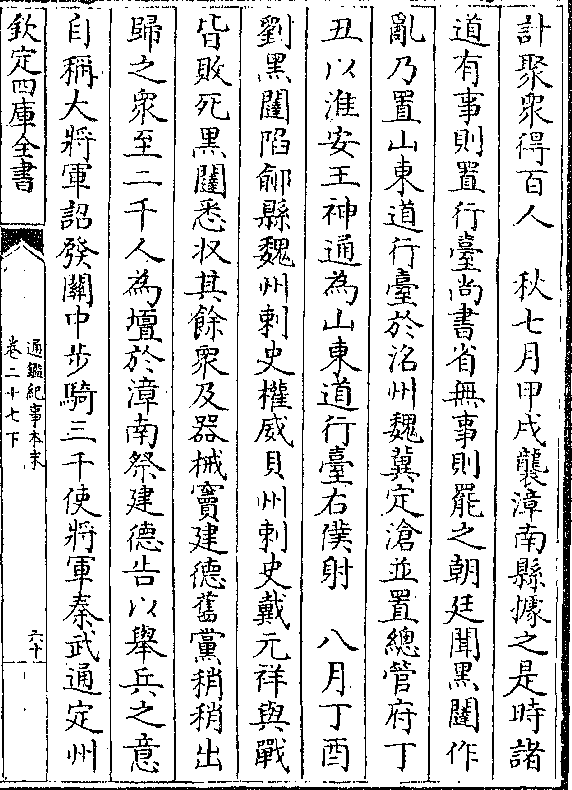 計聚衆得百人　秋七月甲戌襲漳南縣據之是時諸
道有事則置行臺尚書省無事則罷之朝廷聞黑闥作
亂乃置山東道行臺於洺州魏冀定滄並置總管府丁
丑以淮安王神通為山東道行臺右僕射　八月丁酉
劉黑闥陷鄃縣魏州刺史權威貝州刺史戴元祥與戰
皆敗死黑闥悉收其餘衆及器械竇建德舊黨稍稍出
歸之衆至二千人為壇於漳南祭建德告以舉兵之意
自稱大將軍詔發關中步騎三千使將軍秦武通定州
欽定四庫全書
通鑑紀事本末
卷二十七下
六十